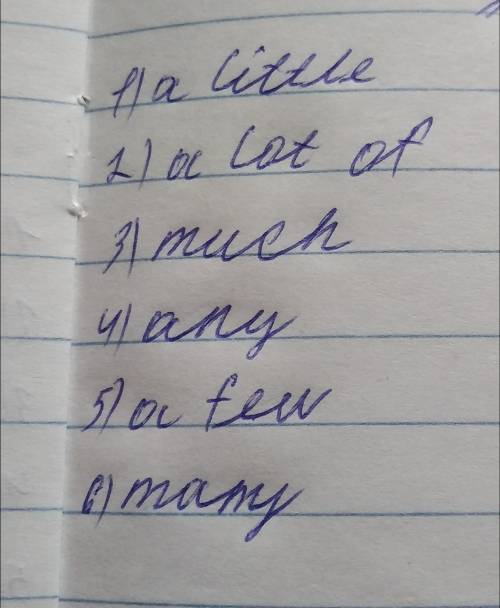 1) a little
2) a lot of
3) much
4) any
5) a few
6) many